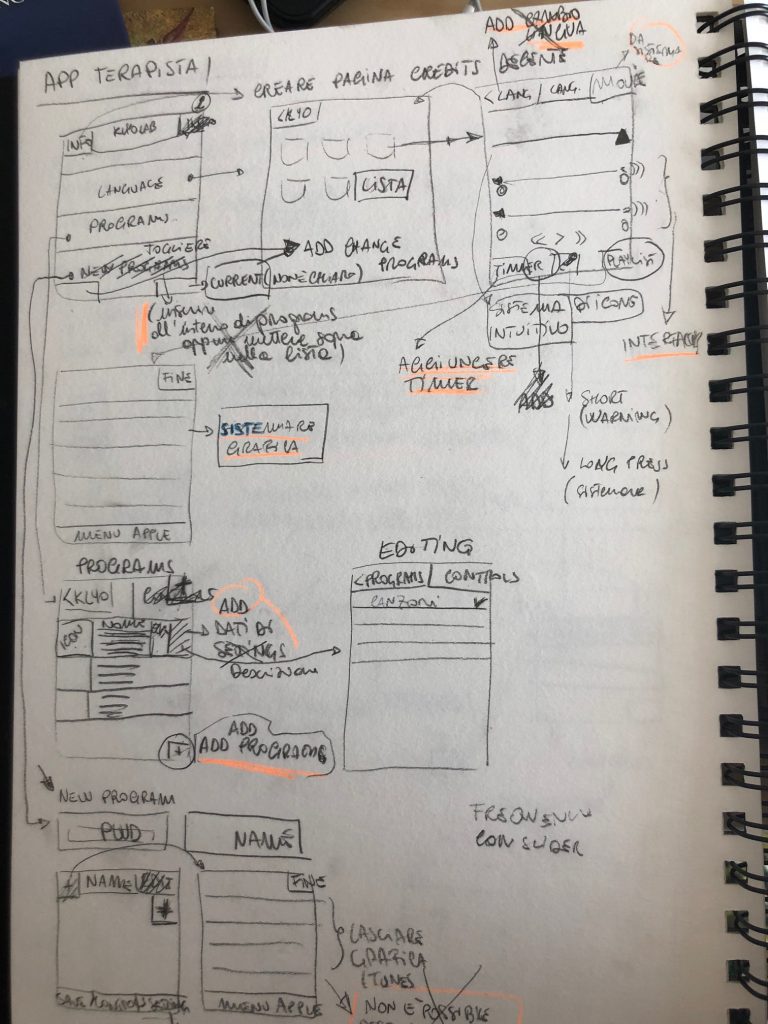 APP TERAPISTA /
CREARE PAGINA CREDITS
ADD CAMBIO
LINGUA
DA
SISTEMA
INFO
KLYOLAB
LANGUAGE
PROGRAMS
TOGLIERE
NEW PROGRAMS
<KLYO
LISTA
CURRENT
(NON È CHIARO)
ADD CHANGE
PROGRAMS
<LANG
LANG.
< > >
TIMER
PLAYLIST
SISTEMA
INTUITIVO
DI ICONE
AGGIUNGERE
TIMER
SHORT
(WARNING)
LONG PRESS
all'interno di programs
oppure mettere sopra
nella lista)
FINE
SISTEMARE
GRAFICA
MENU APPLE
PROGRAMS
<KLYO
ICON
NAME
ADD
DATI DI
SETTINGS
Descrizione
+
ADD
ADD PROGRAMS
EDITING
<PROGRAMS
CONTROLS
CANZONI
NEW PROGRAM
PWD
NAME
+
NAME
FINE
MENU APPLE
LASCIARE
GRAFICA
ITUNES
NON È POSSIBILE
CON SLIDER